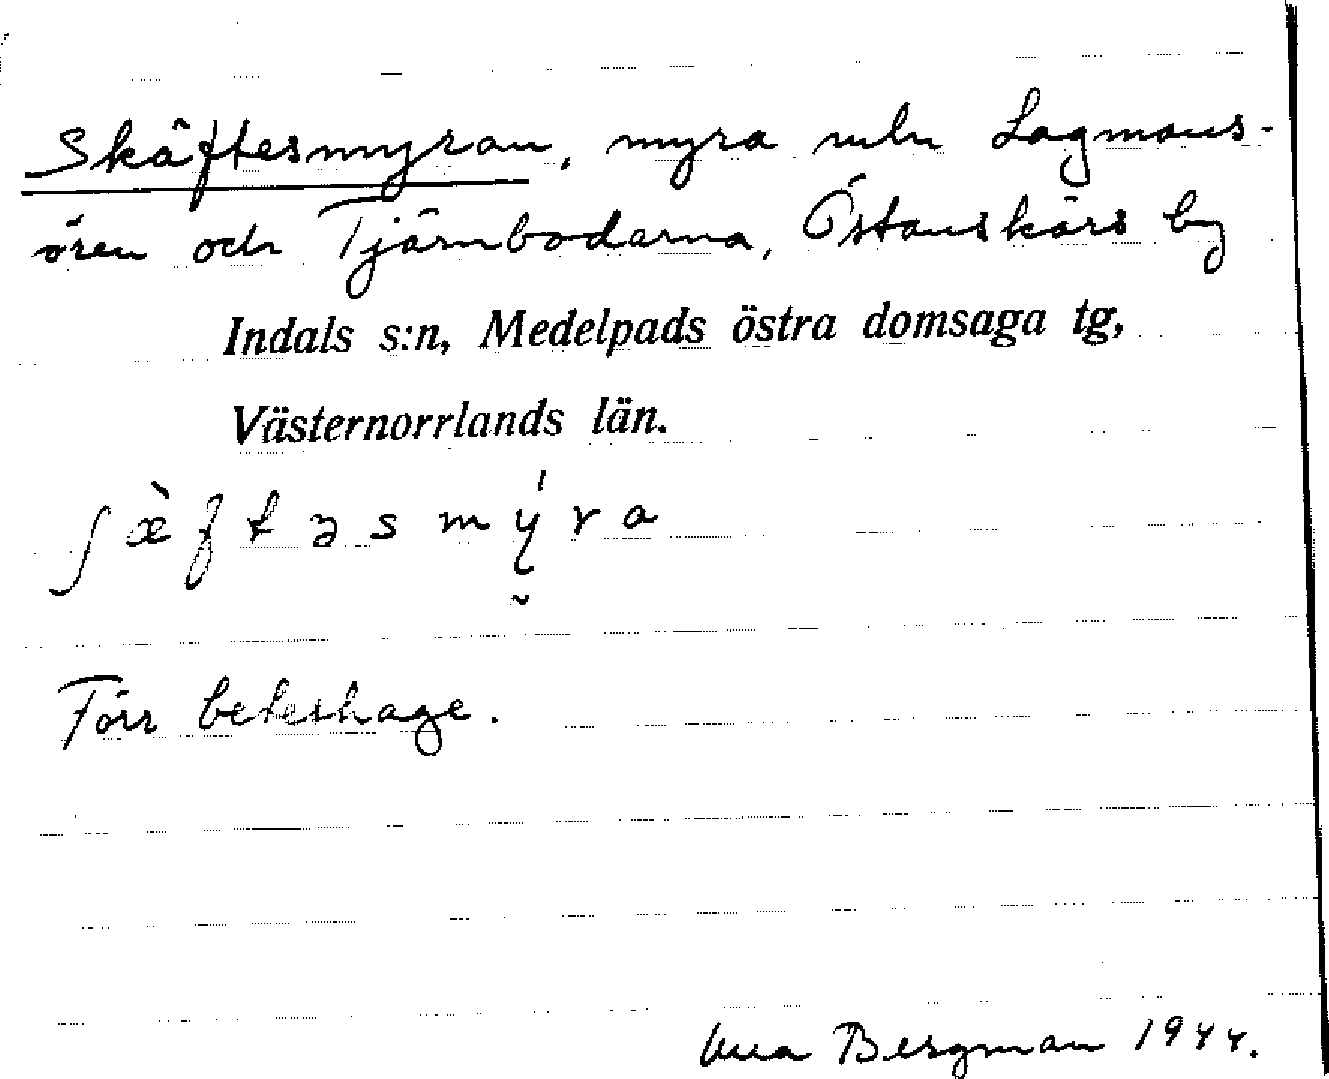 Skäftesmyran, myra mln Lagmans-
ören och Tjärnbodarna, Östanskärs by
Indals s:n, Medelpads östra domsaga tg,
Västernorrlands län.
ʃæ̀ftəsmy̆́ra
Förr beteshage.
Bergman 1944.